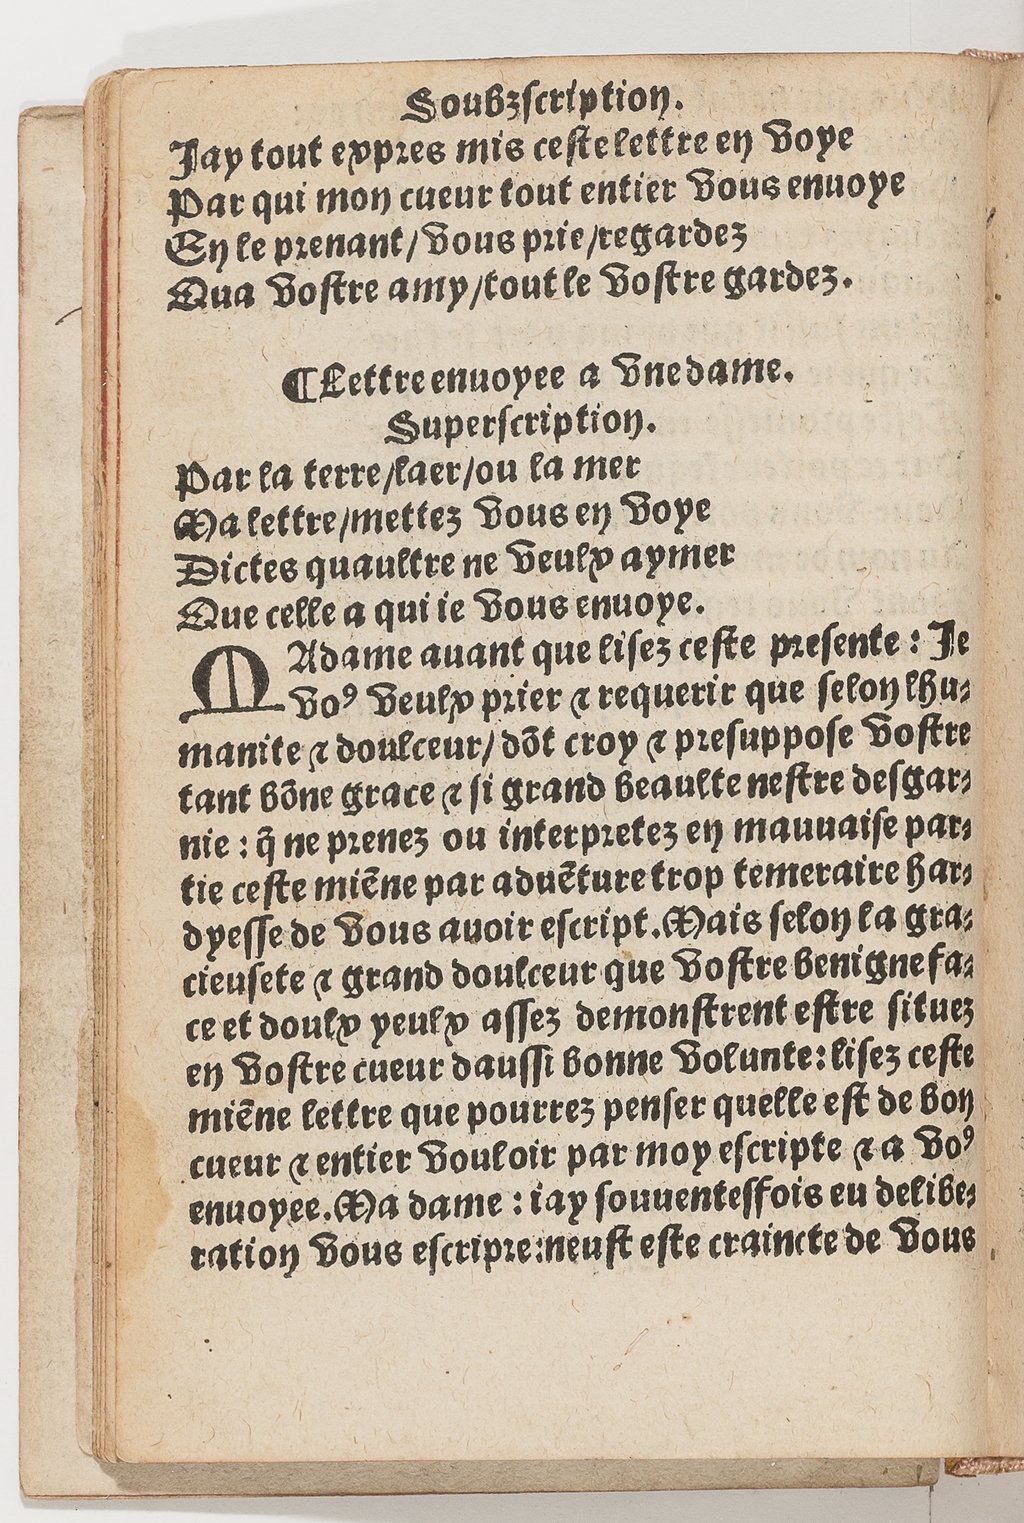 Soubzscription.
Jay tout expres mis ceste lettre en voye
Par qui mon cueur tout entier vous enuoye
En le prenant/vous prie/regardez
Qua vostre amy/tout le vostre gardez.
¶Lettre enuoyee a vne dame.
Superscription.
Par la terre/laer/ou la mer
Ma lettre/mettez vous en voye
Dictes quaultre ne veulx aymer
Que celle a qui ie vous enuoye.
MAdame auant que lisez ceste presente: Je
voꝰ veulx prier ⁊ requerir que selon lhu⸗
manite ⁊ doulceur/dõt croy ⁊ presuppose vostre
tant bõne grace ⁊ si grand beaulte nestre desgar⸗
nie: q̃ ne prenez ou interpretez en mauuaise par⸗
tie ceste miẽne par aduẽture trop temeraire har⸗
dyesse de vous auoir escript. Mais selon la gra⸗
cieusete ⁊ grand doulceur que vostre benigne fa⸗
ce et doulx yeulx assez demonstrent estre situez
en vostre cueur daussi bonne volunte: lisez ceste
miẽne lettre que pourrez penser quelle est de bon
cueur ⁊ entier vouloir par moy escripte ⁊ a voꝰ
enuoyee. Ma dame: iay souuenteffois eu delibe⸗
ration vous escripre: neust este craincte de vous